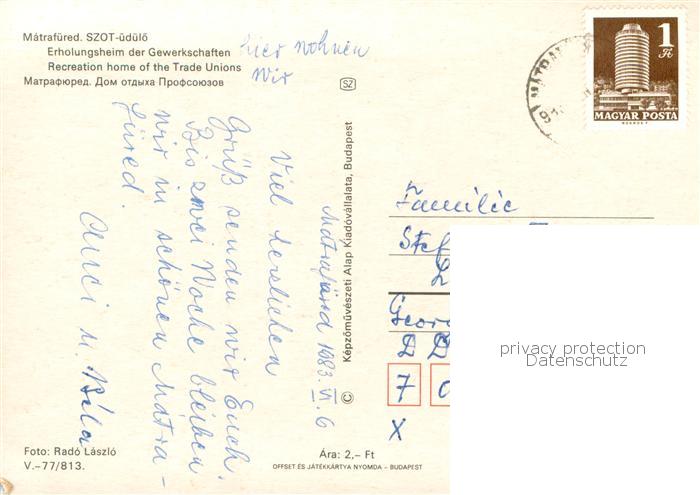 Mátrafüred. SZOT-üdülő
Erholungsheim der Gewerkschaften
Recreation home of the Trade Unions
Матрафюред. Дом отдыха Профсоюзов
hier wohnen
wir
SZ
1 Ft
MAGYAR POSTA
Mátrafüred 1983. VI. 6
Viel herzlichen
Grüß senden wir Euch.
Bis zwei Woche bleiben
wir in schönen Mátra-
füred.
Cluci u. Béla
© Képzőművészeti Alap Kiadóvállalata, Budapest
Familie
Stef
Geor
DD
7 0
X
privacy protection
Datenschutz
Foto: Radó László
V.-77/813.
Ára: 2,- Ft
OFFSET ÉS JÁTÉKKÁRTYA NYOMDA - BUDAPEST